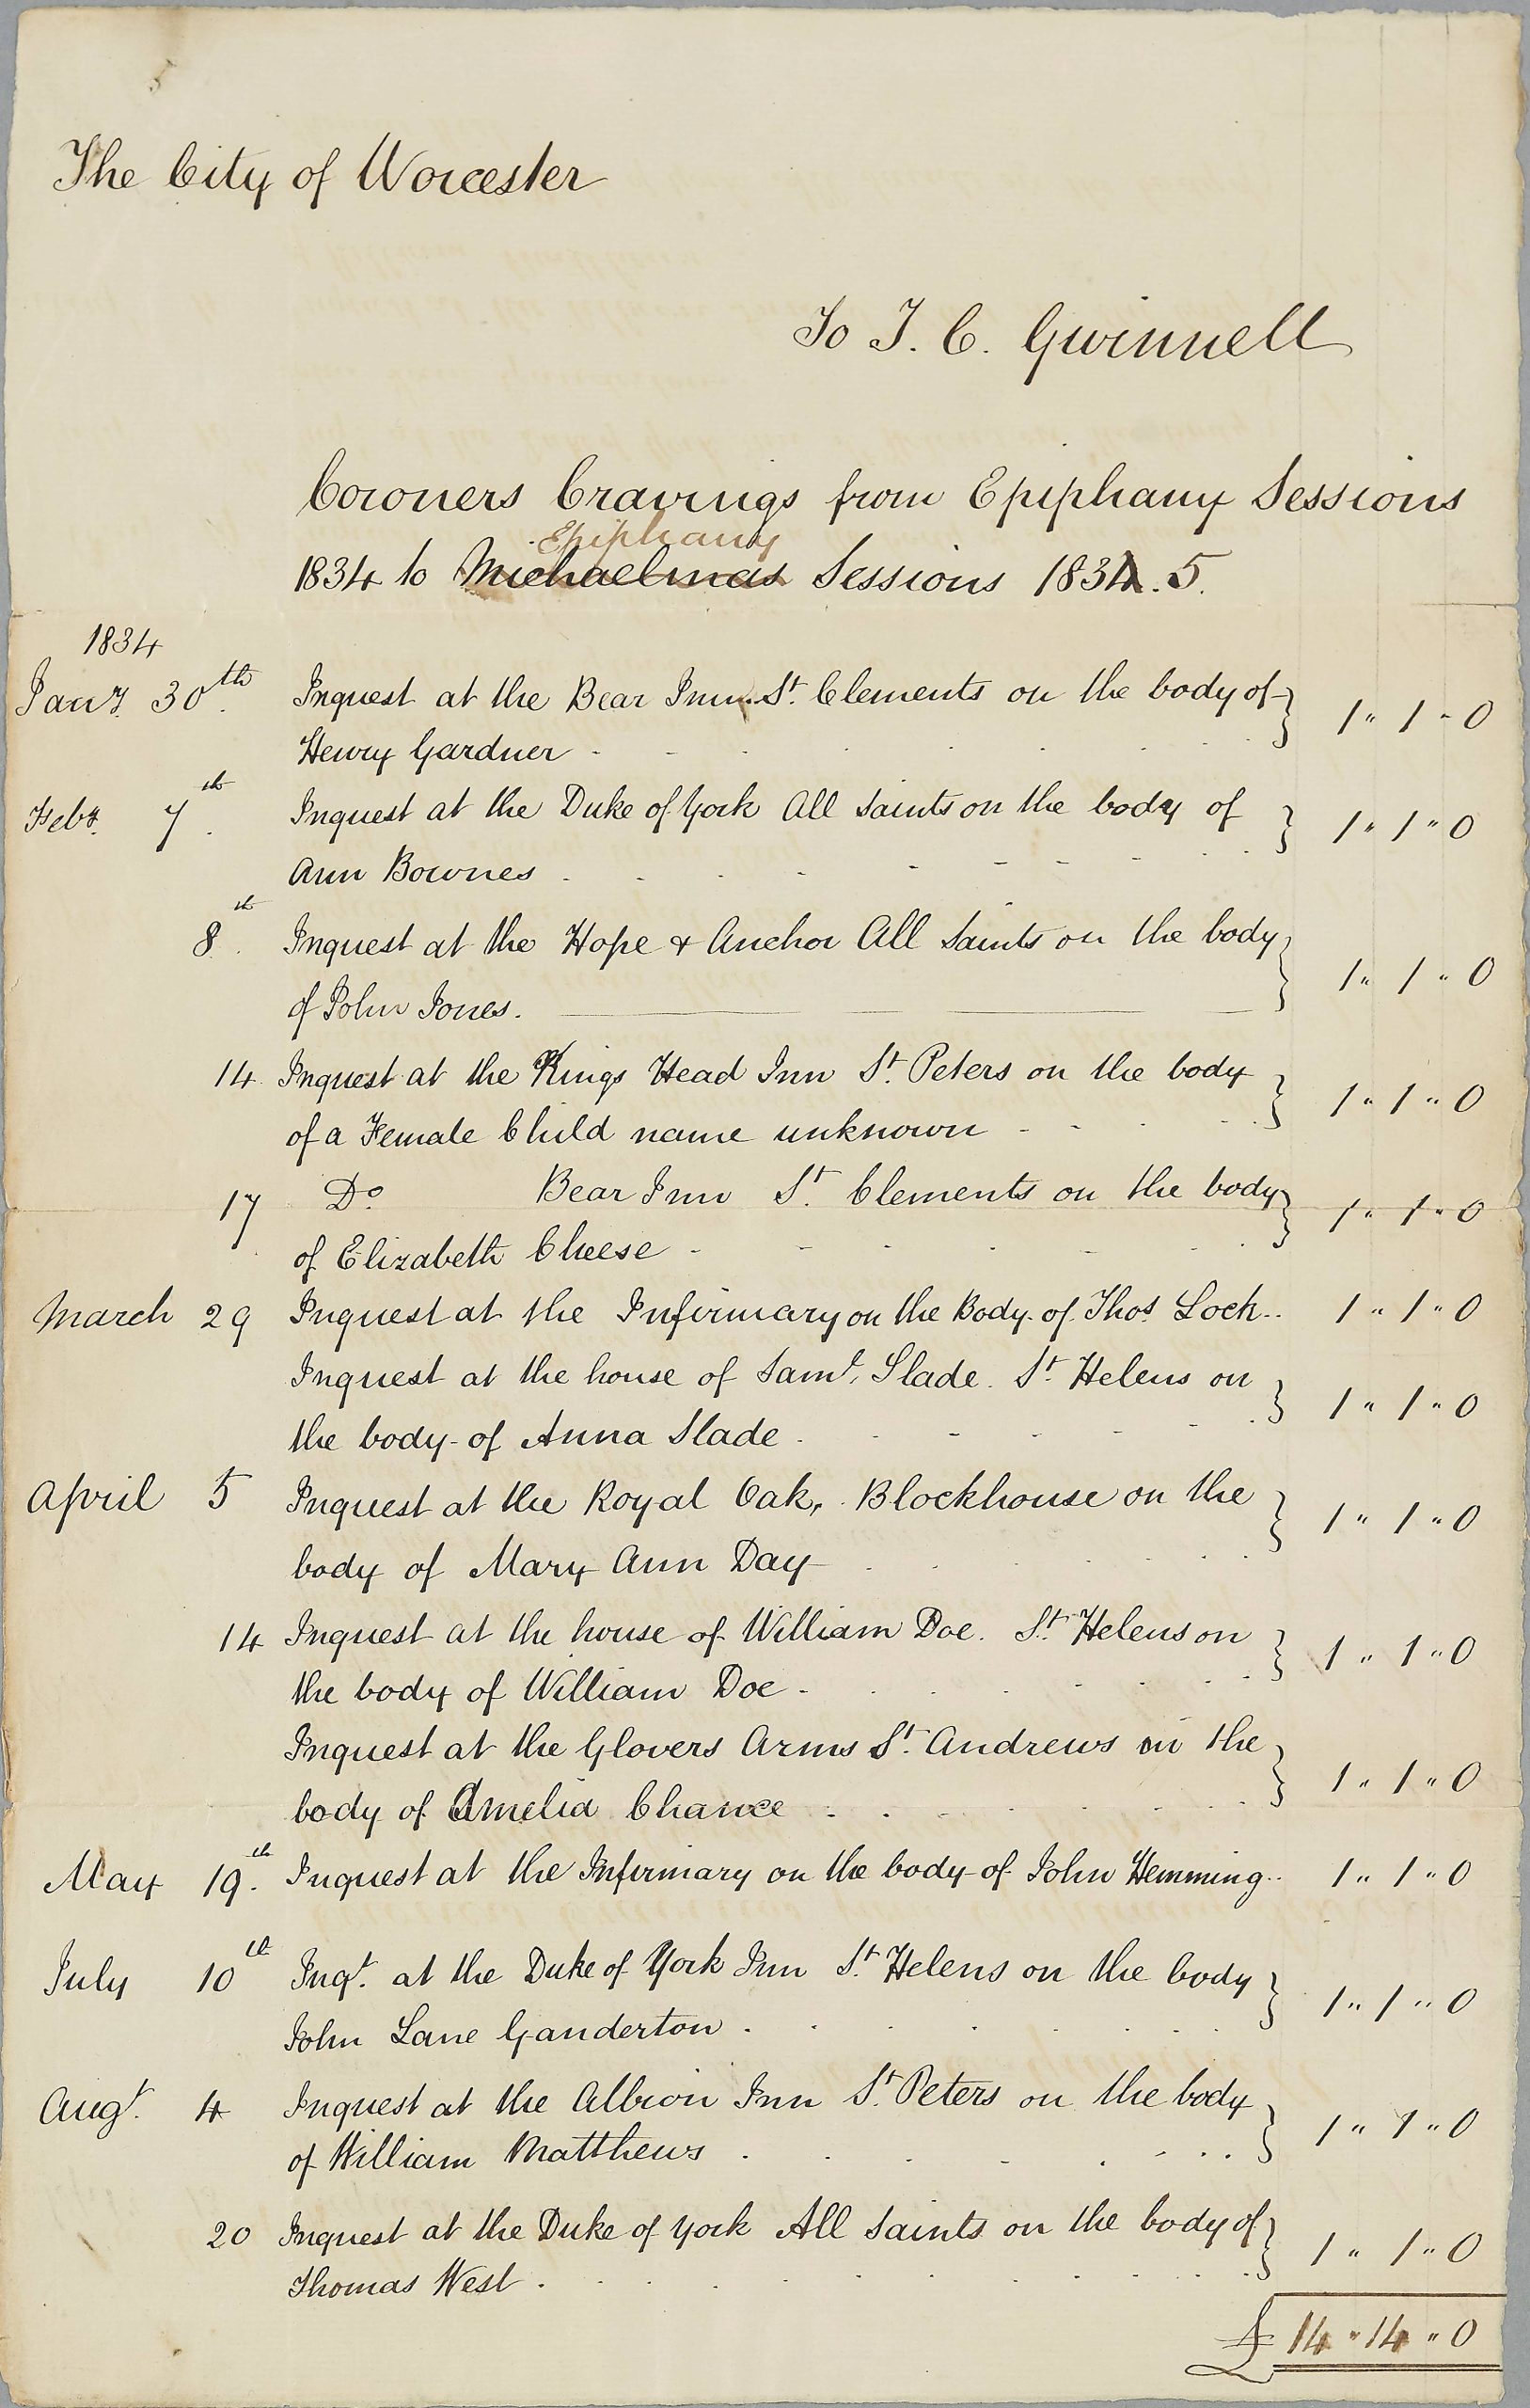 The City of Worcester
To T. C. Gwinnell
Coroners Cravings from Epiphany Sessions
Epiphany
1834 to Michaelmas Sessions 1834. 5.
1834
Jany. 30th. Inquest at the Bear Inn. St. Clements on the body of } 1 " 1 " 0
Henry Gardner
Feby. 7th. Inquest at the Duke of York All Saints on the body of } 1 " 1 " 0
Ann Bownes
8th. Inquest at the Hope & Anchor All Saints on the body } 1 " 1 " 0
of John Jones.
14 Inquest at the Kings Head Inn St. Peters on the body } 1 " 1 " 0
of a Female Child name unknown
17 Do. Bear Inn St. Clements on the body } 1 " 1 " 0
of Elizabeth Cheese
March 29 Inquest at the Infirmary on the Body of Thos. Lock 1 " 1 " 0
Inquest at the house of Saml. Slade. St. Helens on } 1 " 1 " 0
the body of Anna Slade
April 5 Inquest at the Royal Oak, Blockhouse on the } 1 " 1 " 0
body of Mary Ann Day
14 Inquest at the house of William Doe. St. Helens on } 1 " 1 " 0
the body of William Doe
Inquest at the Glovers Arms St. Andrews on the } 1 " 1 " 0
body of Amelia Chance
May 19th. Inquest at the Infirmary on the body of John Hemming 1 " 1 " 0
July 10th Inqt. at the Duke of York Inn St. Helens on the body } 1 " 1 " 0
John Lane Ganderton
Augt. 4 Inquest at the Albion Inn St. Peters on the body } 1 " 1 " 0
of William Matthews
20 Inquest at the Duke of York All Saints on the body of } 1 " 1 " 0
Thomas West
£ 14 " 14 " 0